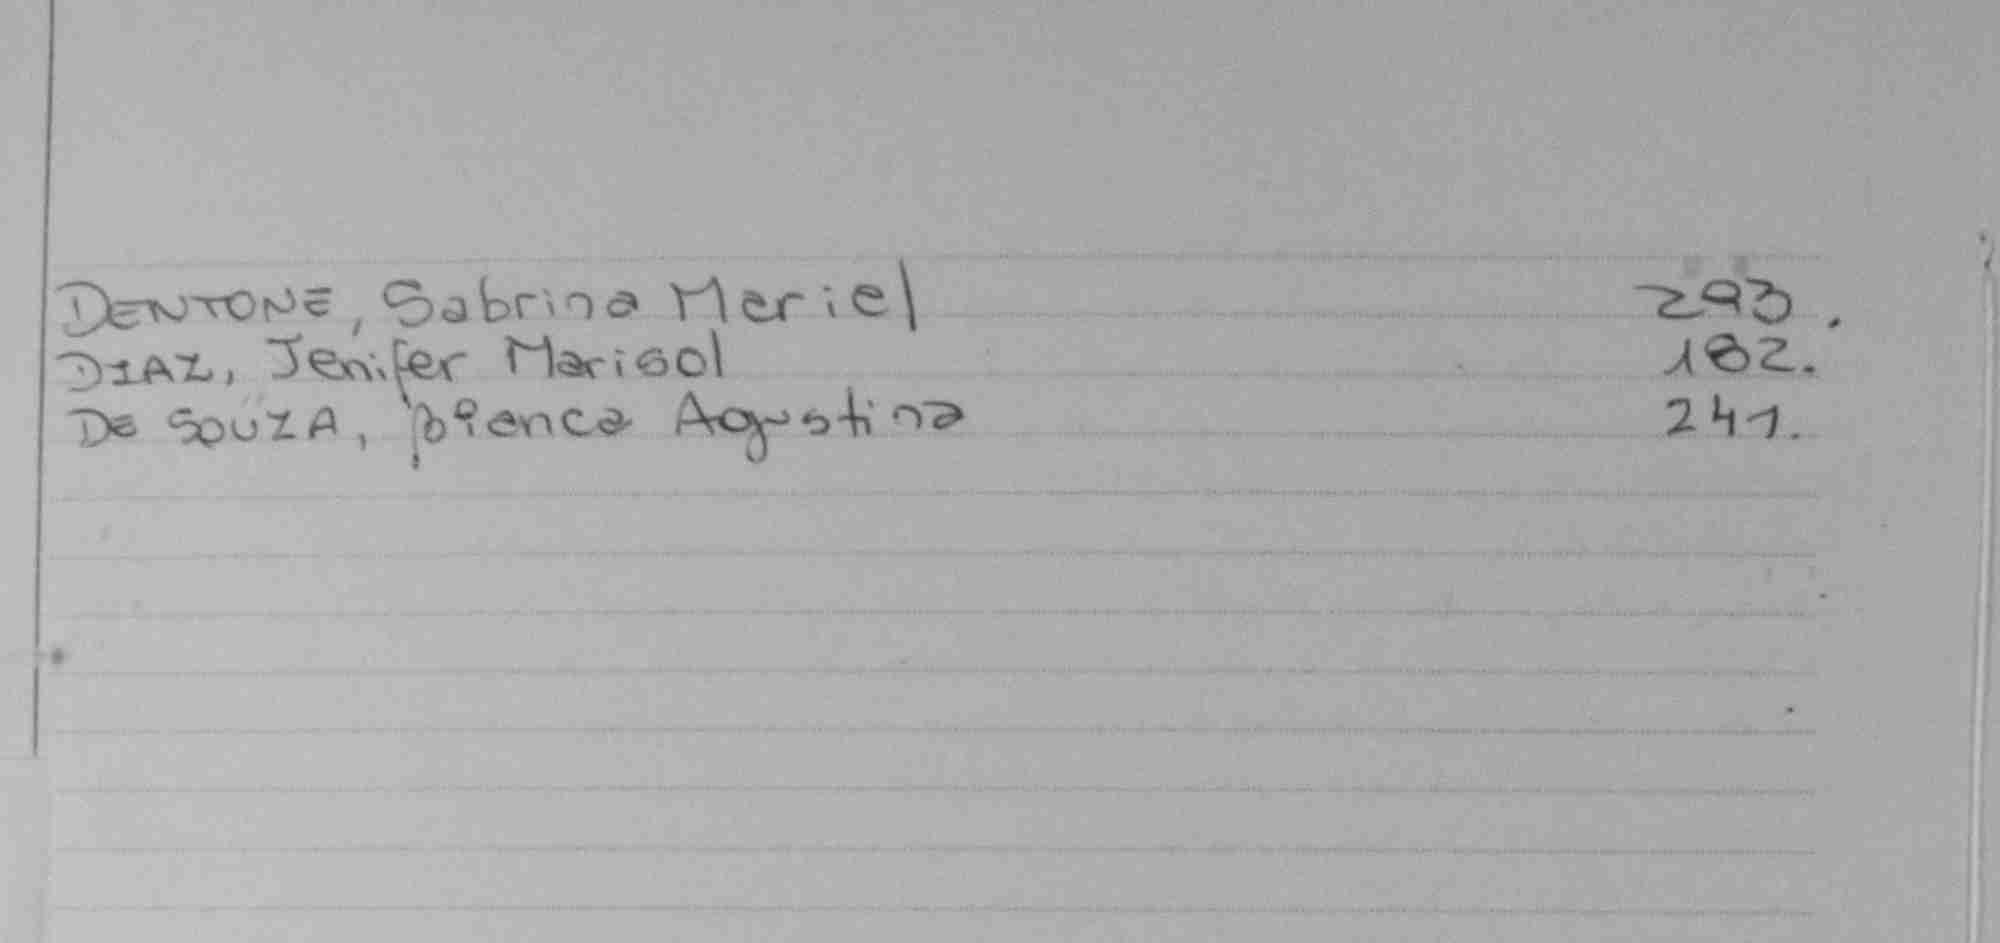 DENTONE, Sabrina Mariel 293.
DIAZ, Jenifer Marisol 182.
DE SOUZA, Bianca Agustina 241.